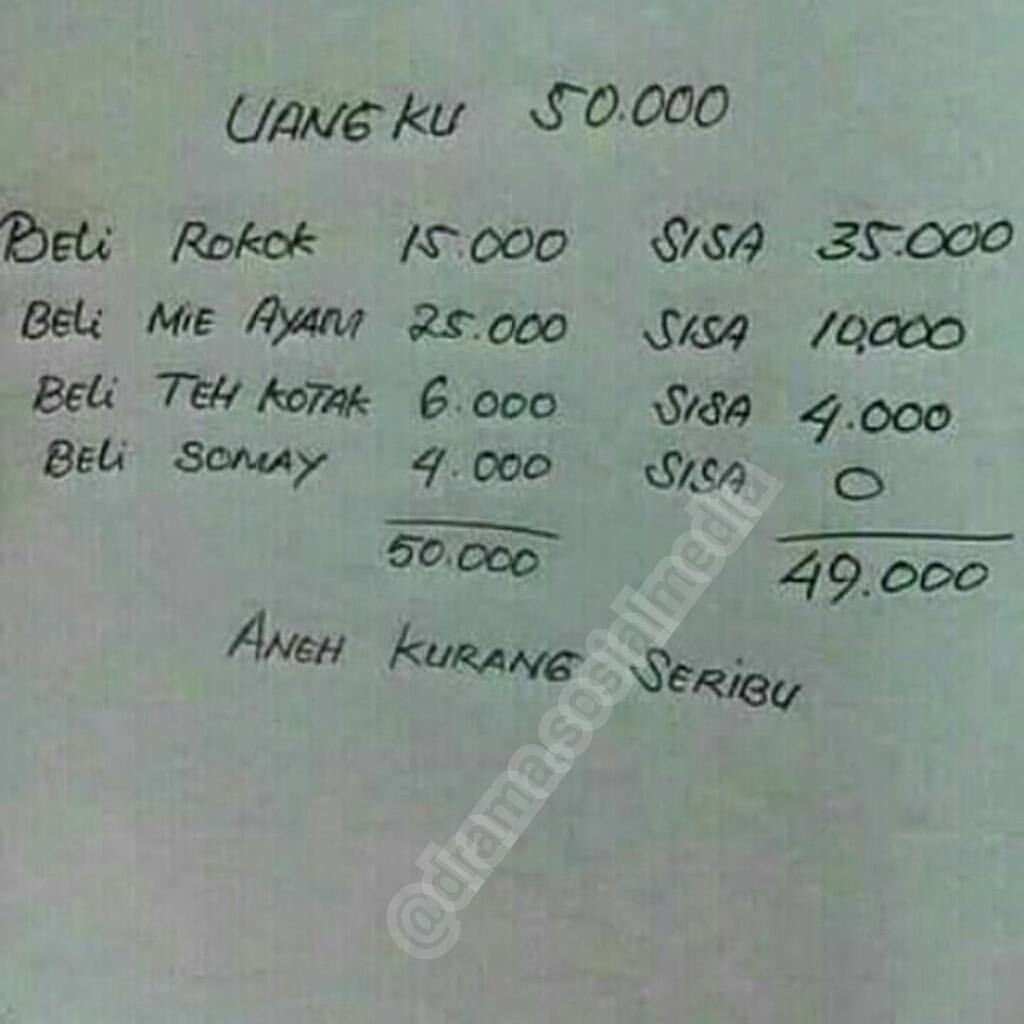 UANGKU 50.000
BELi ROKOK 15.000 SISA 35.000
BELi MiE AYAM 25.000 SISA 10,000
BELi TEH KOTAK 6.000 SISA 4.000
BELi SOMAY 4.000 SISA 0
50.000 49.000
ANEH KURANG SERiBU
@drama.sosialmedia